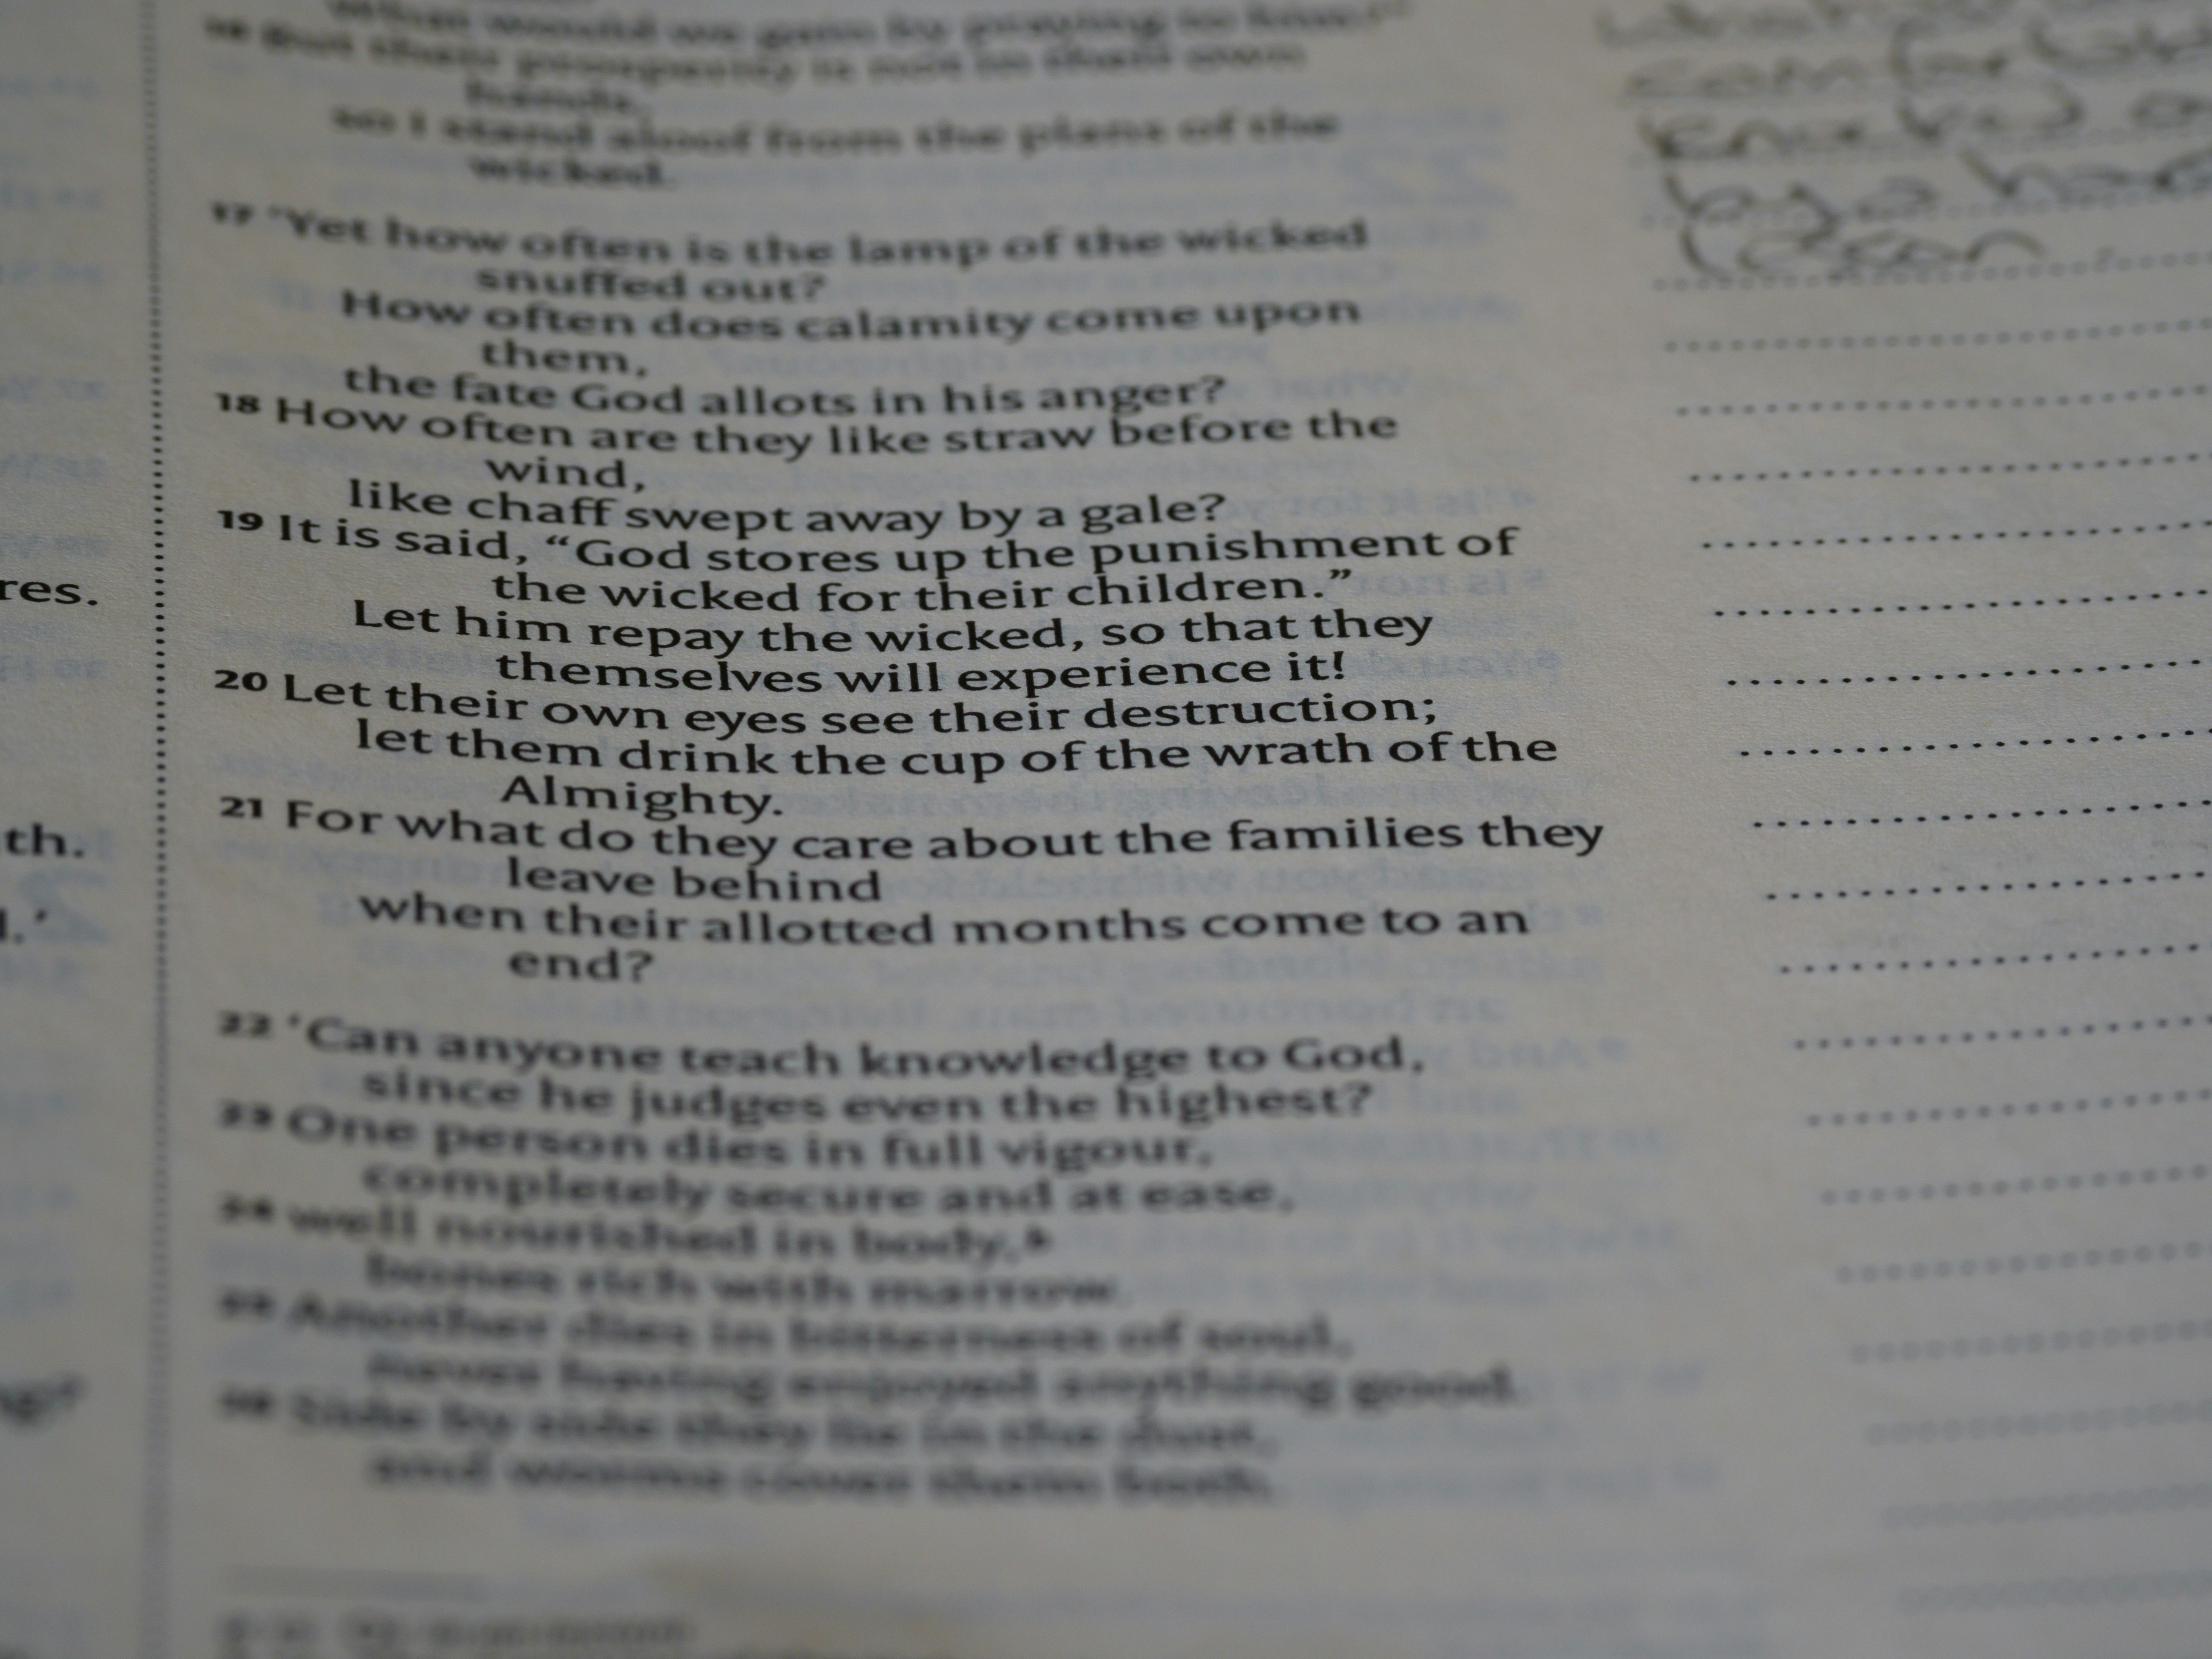 What would we gain by praying to him?"
16 But their prosperity is not in their own
hands,
so I stand aloof from the plans of the
wicked.
17 ‘Yet how often is the lamp of the wicked
snuffed out?
How often does calamity come upon
them,
the fate God allots in his anger?
18 How often are they like straw before the
wind,
like chaff swept away by a gale?
19 It is said, “God stores up the punishment of
the wicked for their children.”
Let him repay the wicked, so that they
themselves will experience it!
20 Let their own eyes see their destruction;
let them drink the cup of the wrath of the
Almighty.
21 For what do they care about the families they
leave behind
when their allotted months come to an
end?
22 ‘Can anyone teach knowledge to God,
since he judges even the highest?
23 One person dies in full vigour,
completely secure and at ease,
24 well nourished in body,b
bones rich with marrow.
25 Another dies in bitterness of soul,
never having enjoyed anything good.
26 Side by side they lie in the dust,
and worms cover them both.
res.
th.
d.’
by a